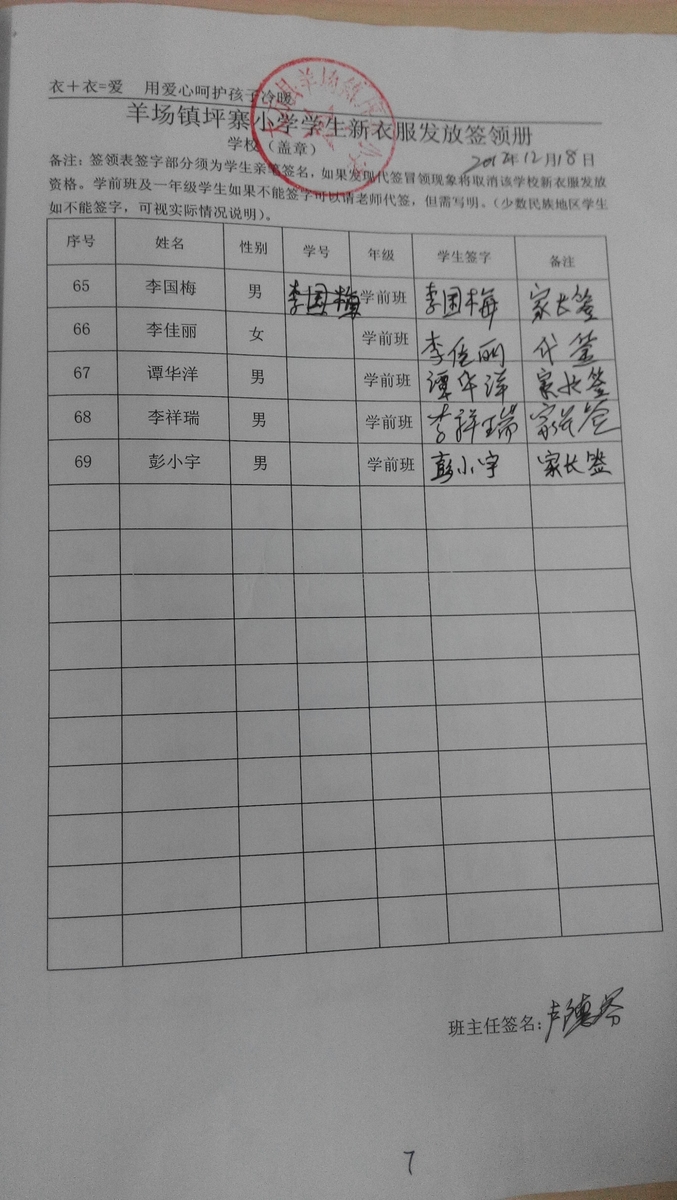 衣+衣=爱 用爱心呵护孩子冷暖
羊场镇坪寨小学学生新衣服发放签领册
学校（盖章） 2012年12月18日
备注：签领表签字部分须为学生亲笔签名，如果发现代签冒领现象将取消该学校新衣服发放
资格。学前班及一年级学生如果不能签字可以请老师代签，但需写明。（少数民族地区学生
如不能签字，可视实际情况说明）。
序号 姓名 性别 学号 年级 学生签字 备注
65 李国梅 男 李国梅 学前班 李国梅 家长签
66 李佳丽 女 学前班 李佳丽 代签
67 谭华洋 男 学前班 谭华洋 家长签
68 李祥瑞 男 学前班 李祥瑞 家长签
69 彭小宇 男 学前班 彭小宇 家长签
班主任签名：卢德
7